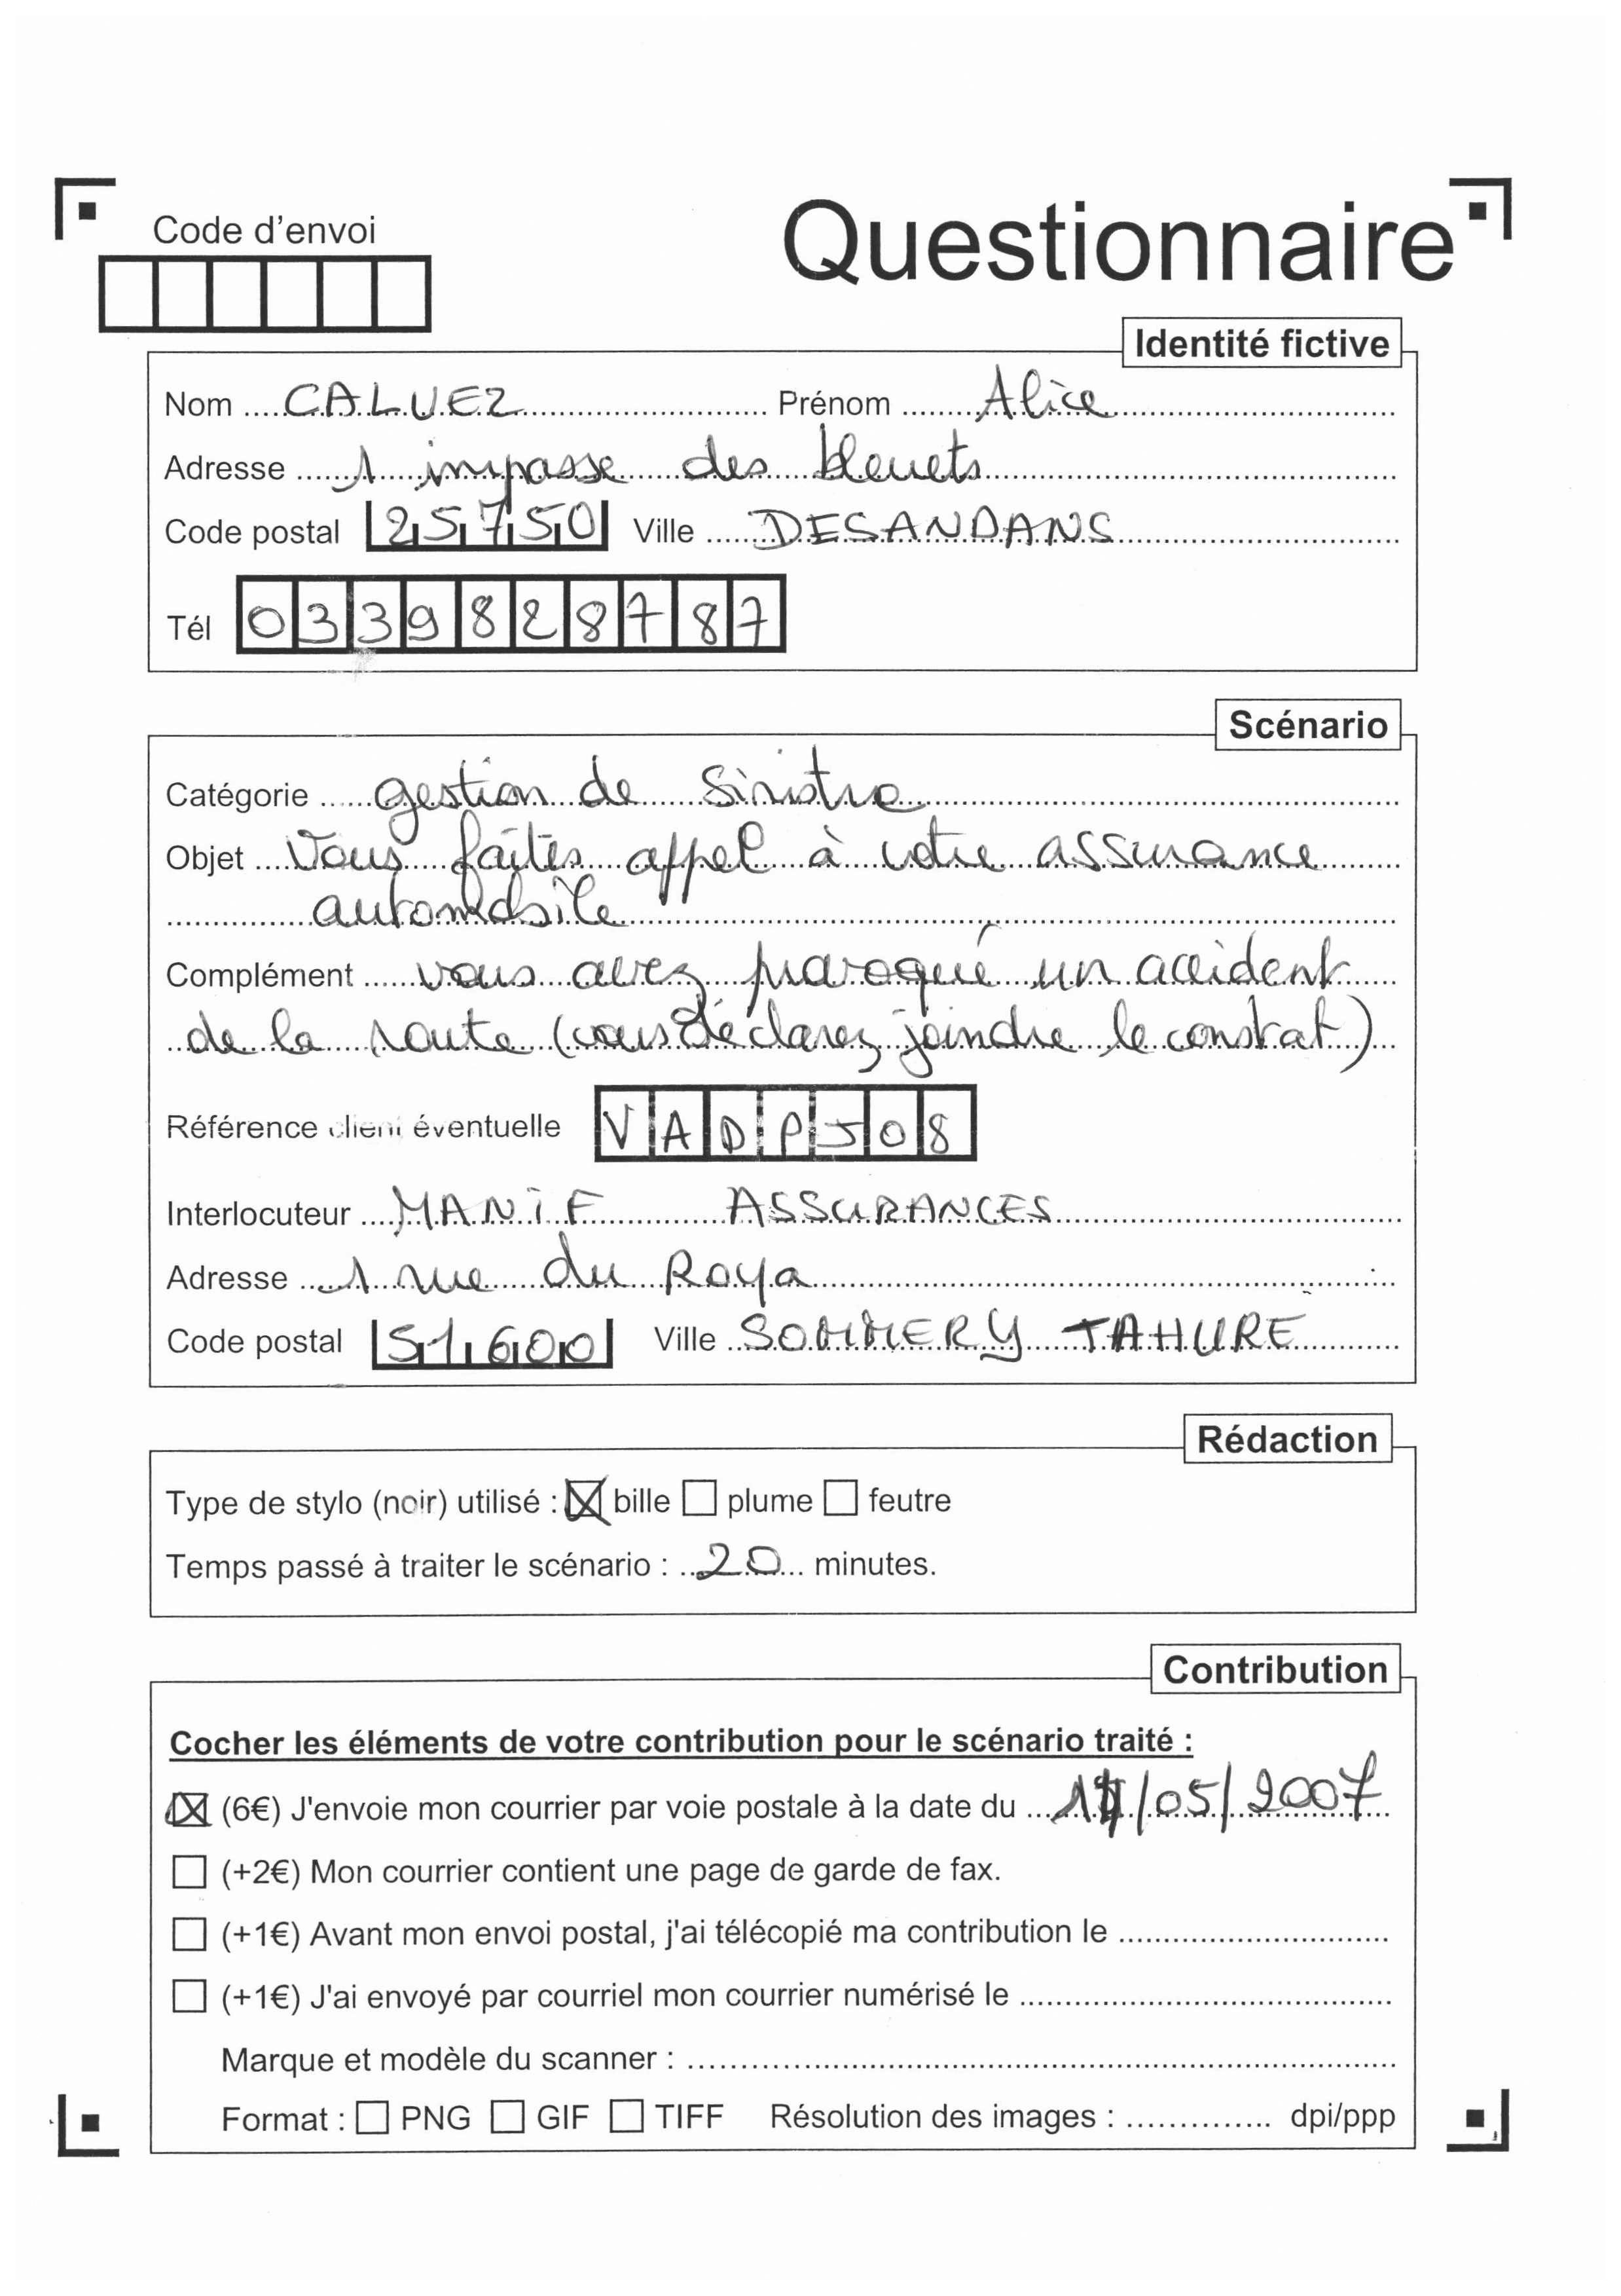 Code d'envoi
Questionnaire
Identité fictive
Nom CALVEZ Prénom Alice
Adresse 1 impasse des bleuets
Code postal 25750 Ville DESANDANS
Tél 0339828787
Scénario
Catégorie gestion de Sinistre
Objet Vous faites appel à votre assurance
automobile
Complément vous avez provoqué un accident
de la route (vous déclarez joindre le constat)
Référence client éventuelle VADPJ08
Interlocuteur MANIF ASSURANCES
Adresse 1 rue du Roya
Code postal 51600 Ville SOMMERY TAHURE
Rédaction
Type de stylo (noir) utilisé : bille plume feutre
Temps passé à traiter le scénario : 20 minutes.
Contribution
Cocher les éléments de votre contribution pour le scénario traité :
(6€) J'envoie mon courrier par voie postale à la date du /05/2007
(+2€) Mon courrier contient une page de garde de fax.
(+1€) Avant mon envoi postal, j'ai télécopié ma contribution le
(+1€) J'ai envoyé par courriel mon courrier numérisé le
Marque et modèle du scanner :
Format : PNG GIF TIFF Résolution des images : dpi/ppp